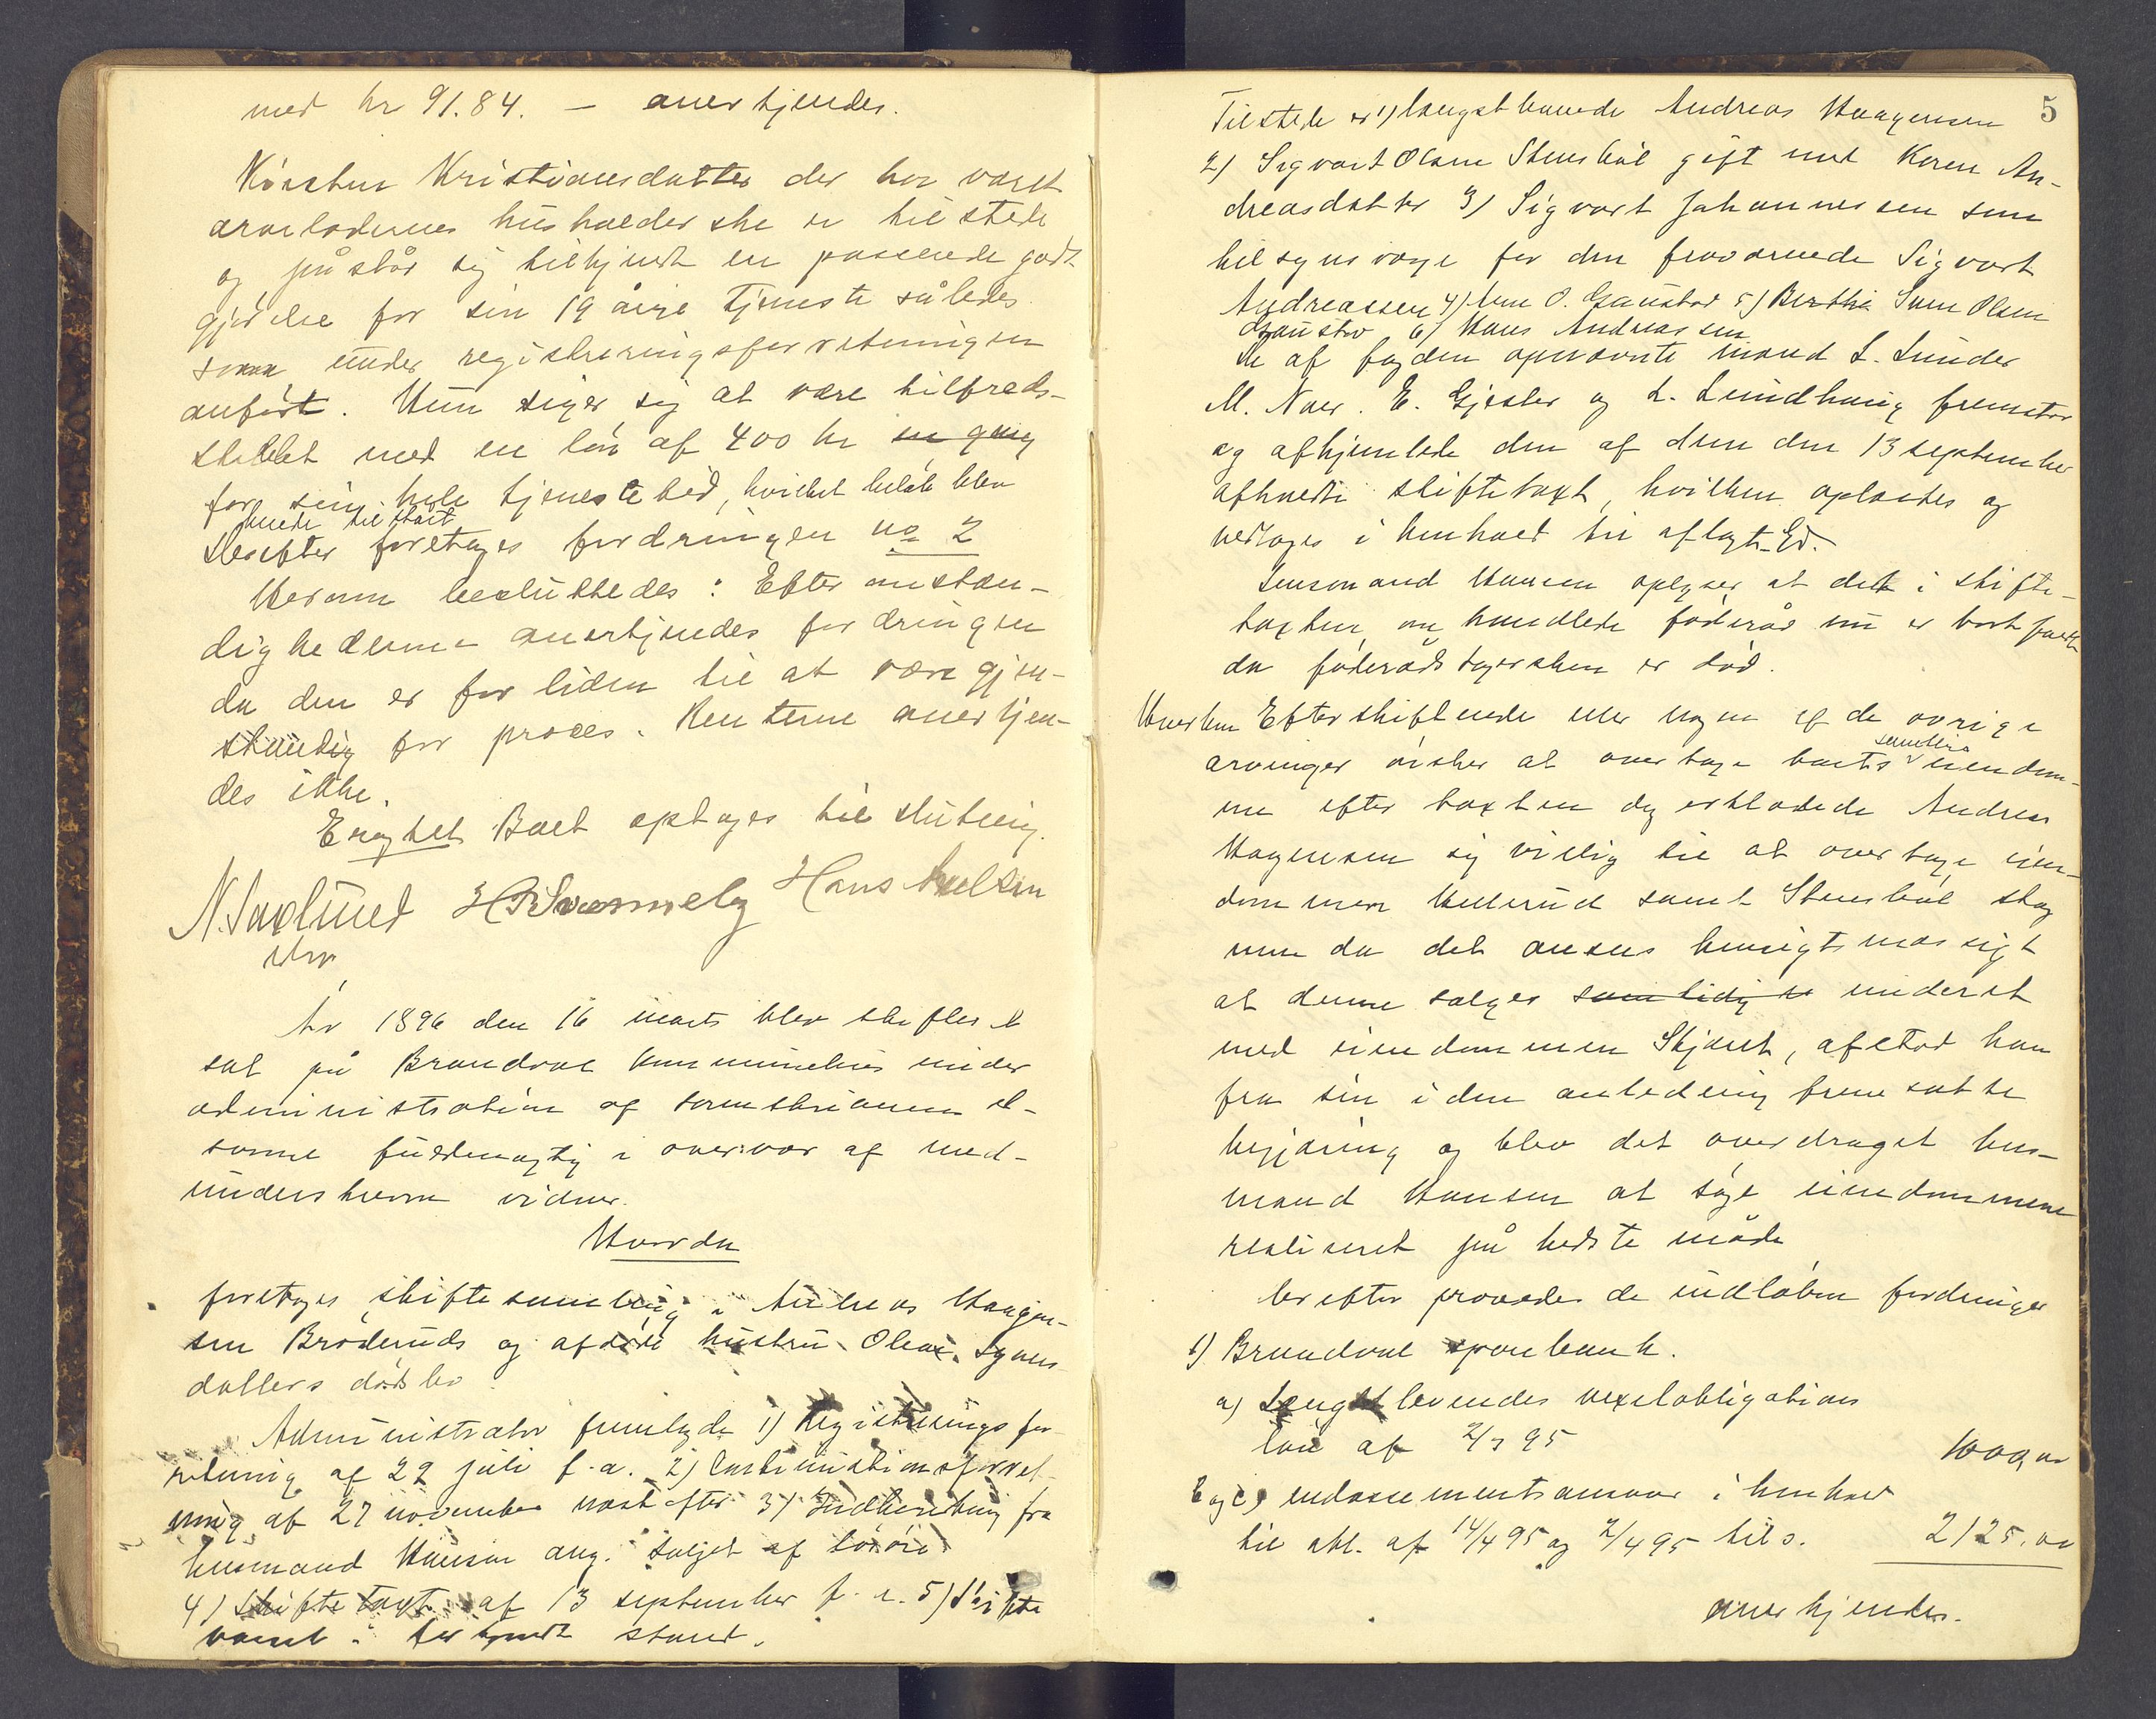 med kr 91.84. — anerkjendes.
Kirsten Kristiansdatter der har været
arveladernes husholderske er tilstede
og påstår sig tilkjendt en passende godt-
gjørelse for sin 19 årige tjeneste således
som under registreringsforretningen
anført. Hun siger sig at være tilfreds-
stillet med en løn af 400 kr en gang
for sin hele tjenestetid, hvilket beløb blev
hende tilstået
Derefter foretages fordringen no 2
Herom besluttedes: Efter omstæn-
dighederne anerkjendes fordringen
da den er for liden til at være gjen-
standig for proces. Renterne anerkjen-
des ikke.
Eragtet Boet optages til slutning.
N. Saxlund H. Svennebÿ Hans Nielsen
År 1896 den 16 marts blev skifteret
sat på Brandval kommunehus under
administration af sorenskriveren ved
samme fuldmægtig i overvær af med-
underskrevne vidner.
Hvorda
foretages skiftesamling i Andreas Haagen-
sen Brøderuds og afdøde hustru Olea Syvers-
datters dødsbo
Administrator fremlagde 1) Registreringsfor-
retning af 22 juli f.a. 2) Continuationsforret-
ning af 27 november næstefter 3) Indberetning fra
lensmand Hansen ang. salget af løsøre
4) Skiftetaxt af 13 september f. a. 5) Skifte
varsel i forkyndt stand.
5
Tilstede er 1) Længstlevende Andreas Haagensen
2) Sigvart Olsen Stensbøl gift med Karen An-
dreasdatter 3) Sigvart Johannessen som
tilsynsværge for den fraværende Sigvart
Andreassen 4) O. Gaustad 5) Berthe Sven Olsen
Gaustad 6) Hans Andreassen
De af fogden opnævnte mænd L. Lunder
M. Noer. E. Gjesler og L. Lundhaug fremstod
og afhjemlede den af dem den 13 september
afholdte skiftetaxt, hvilken oplæstes og
vedtoges i henhold til aflagt Ed.
Lensmand Hansen oplyser at det i skifte-
taxten omhandlede føderåd nu er bortfaldt
da føderådstagersken er død.
Hverken Efterskiftende eller nogen af de øvrige
arvinger ønsker at overtage boets samtlige eiendom-
me efter taxten dog erklærede Andreas
Haagensen sig villig til at overtage eien-
dommen Hulerud samt Stensbøl skog
men da det ansees hensigtsmæssigt
at denne sælges samtidig se underet
med eiendommen Skjæret, afstod han
fra sin i den anledning fremsatte
begjæring og blev det overdraget lens-
mand Hansen at søge eiendommene
realiseret på bedste måde
Derefter prøvedes de indløbne fordringer
1) Brandval sparebank.
a) Længstlevendes vexelobligations
lån af 2/7 95 1000,00
b og c) endossementsansvar i henhold
til obl. af 14/4 95 og 2/4 95 tils. 2125,00
anerkjendes.